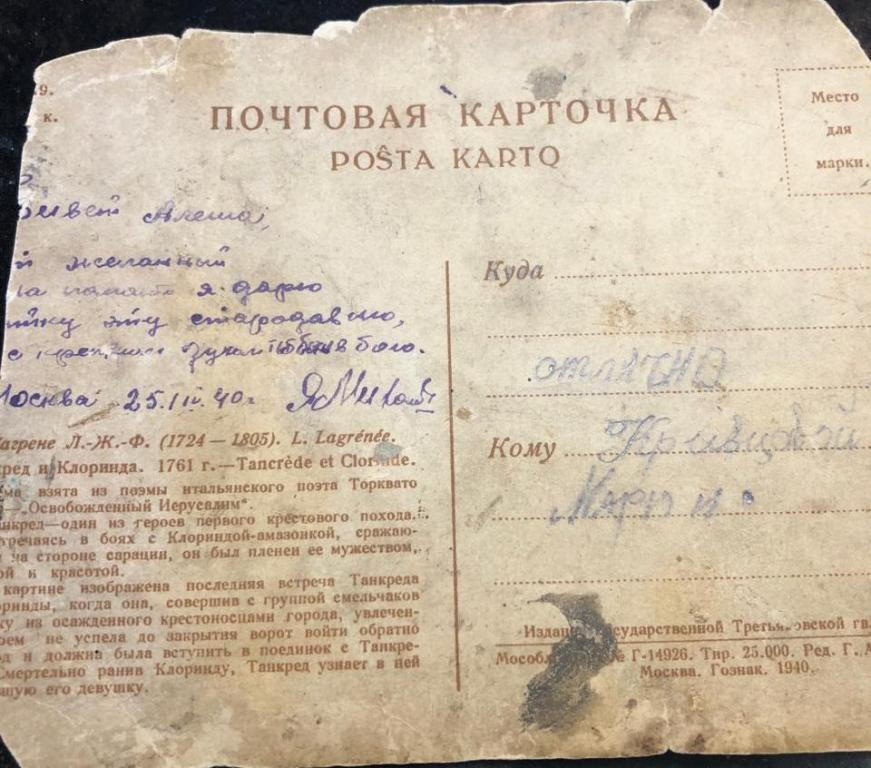 9.
к.
ПОЧТОВАЯ КАРТОЧКА
POŜTA KARTO
Место
для
марки.
Алеша,
й желанный
я дарю
эту стародавню,
с
Москва 25.III.40г
Куда
отлично
Кому Кравцовой
Марии
агрене Л.-Ж.-Ф. (1724—1805). L. Lagrénée.
ред и Клоринда. 1761 г.—Tancrède et Clorinde.
ма взята из поэмы итальянского поэта Торквато
—„Освобожденный Иерусалим".
нкред—один из героев первого крестового похода.
тречаясь в боях с Клориндой-амазонкой, сражаю-
на стороне сарацин, он был пленен ее мужеством,
ой и красотой.
картине изображена последняя встреча Танкреда
оринды, когда она, совершив с группой смельчаков
ку из осажденного крестоносцами города, увлечен-
оем не успела до закрытия ворот войти обратно
од и должна была вступить в поединок с Танкре-
Смертельно ранив Клоринду, Танкред узнает в ней
шую его девушку.
Издание Государственной Третьяковской га
Мособл № Г-14926. Тир. 25.000. Ред. Г.
Москва. Гознак. 1940.